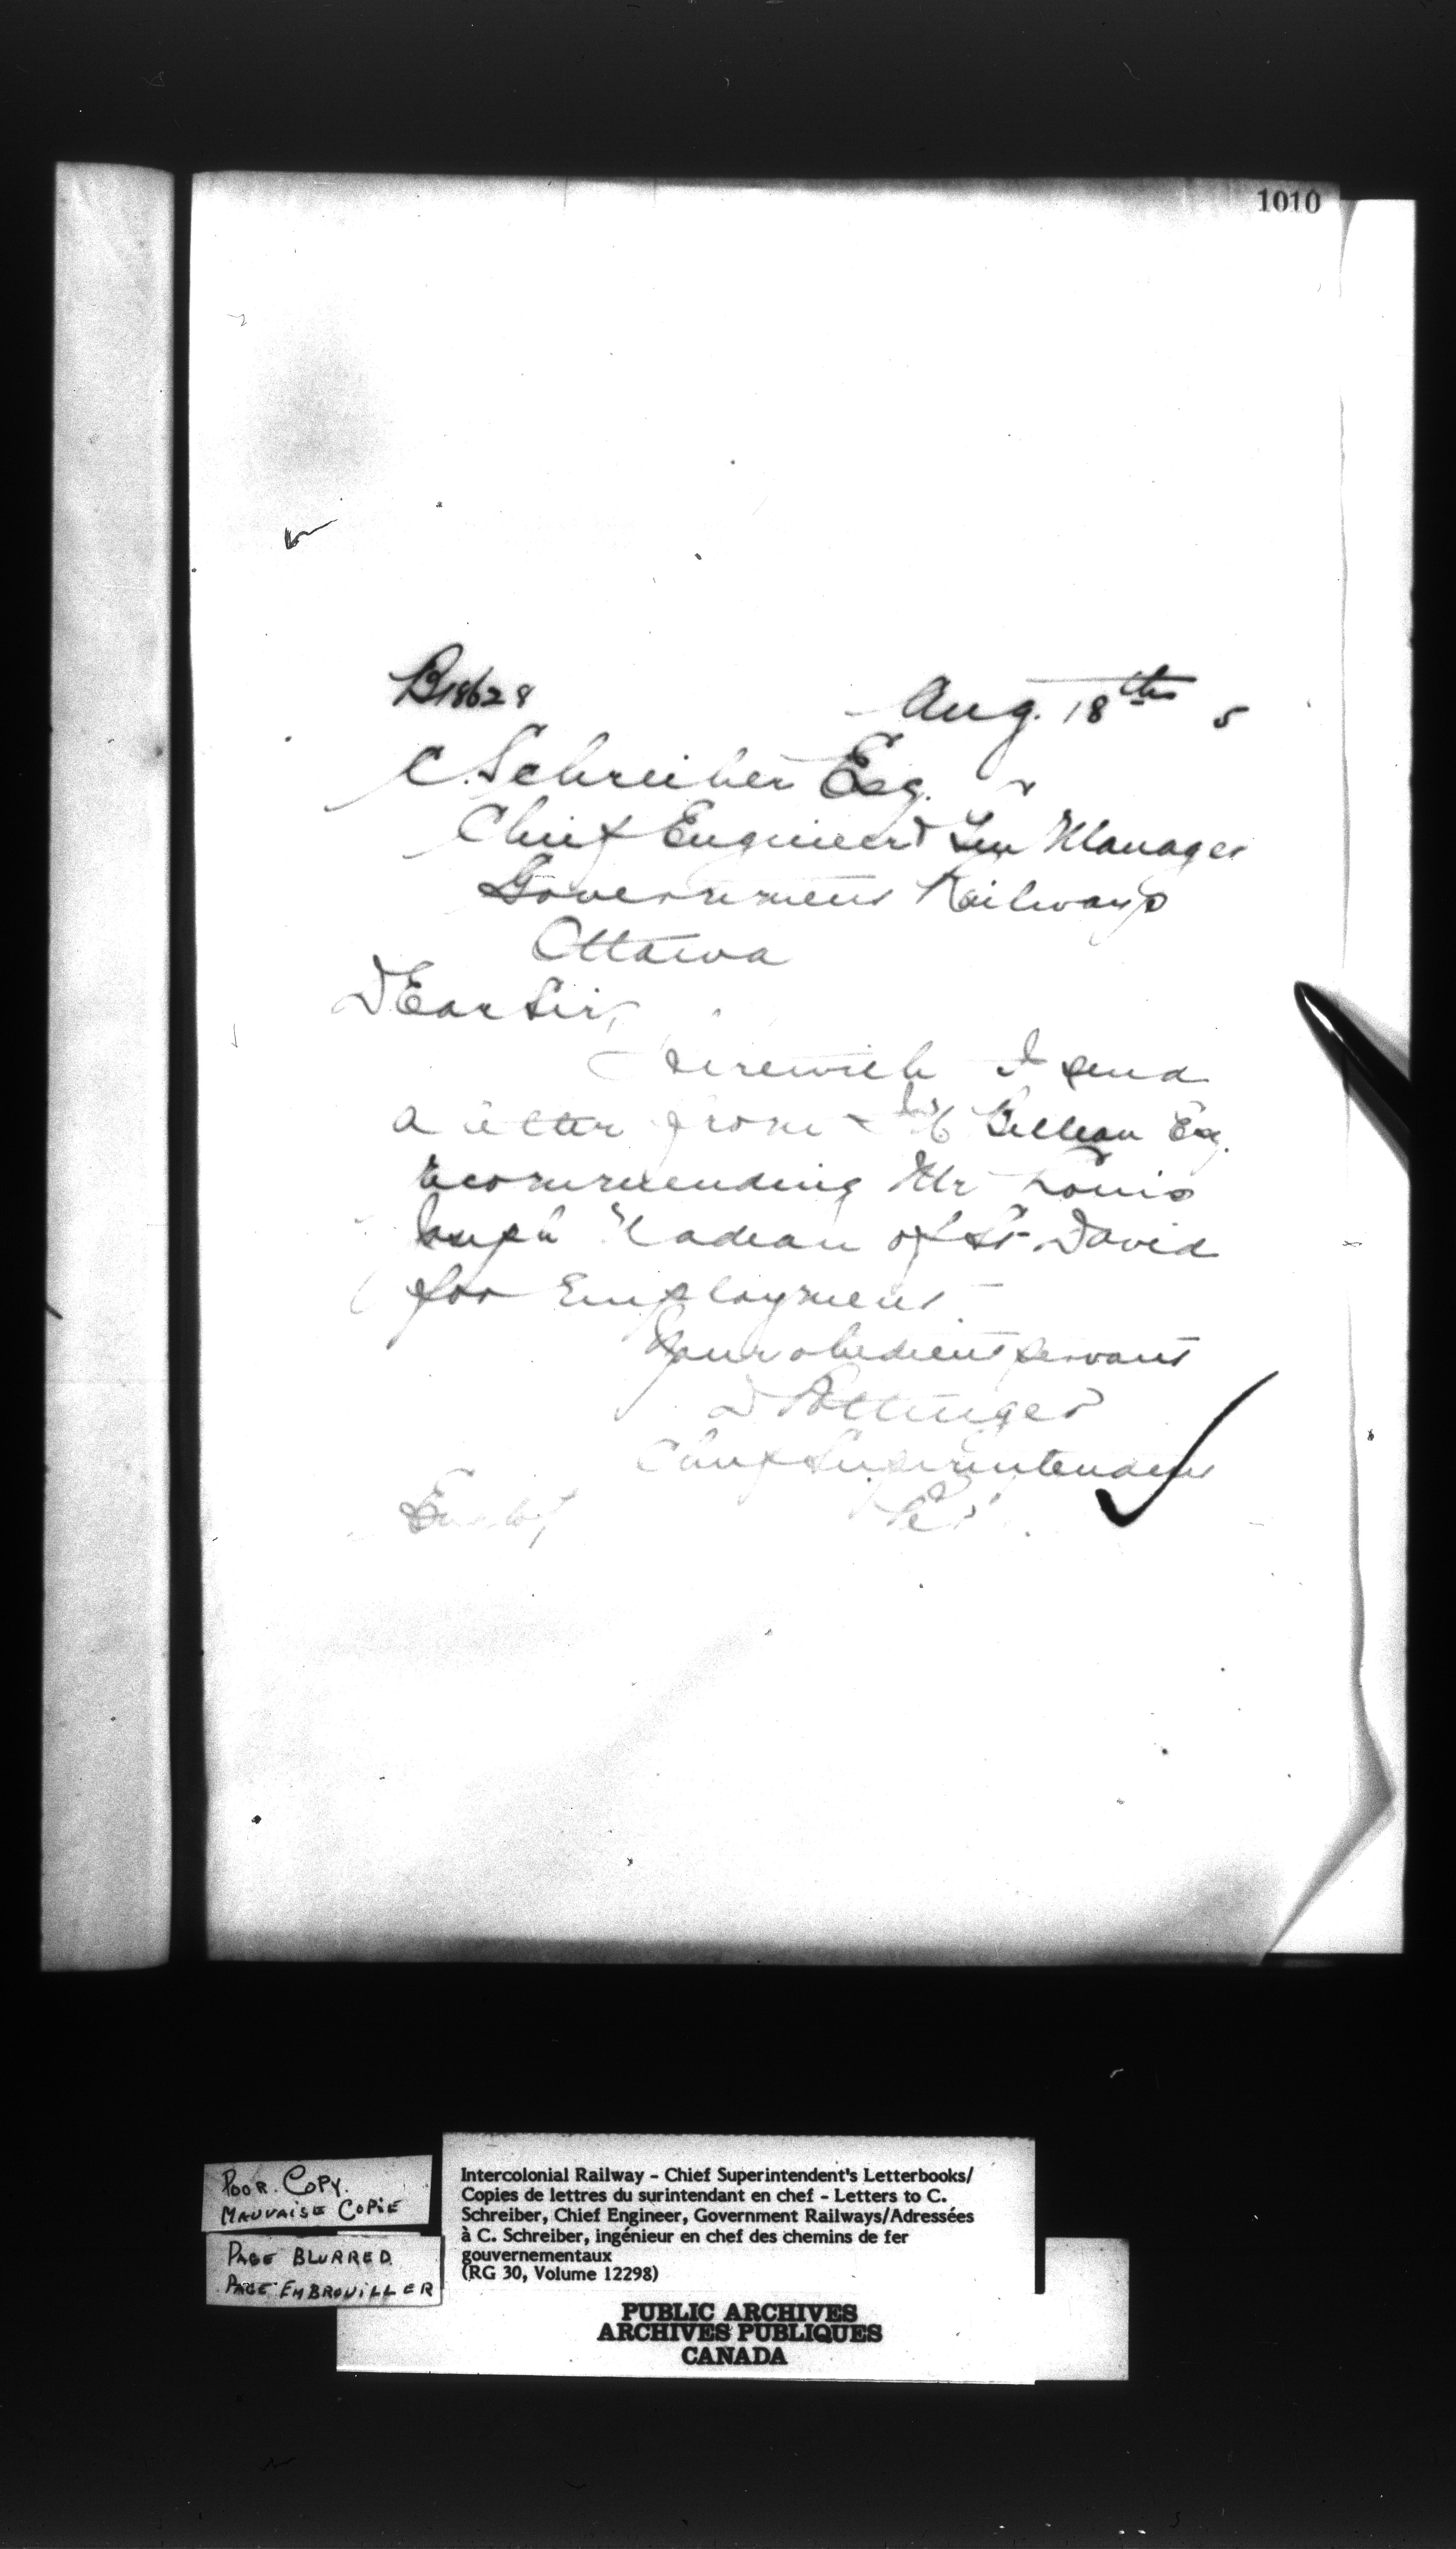 1010
B18628
Aug. 18th 5
C. Schreiber Esq.
Chief Engineer & Gen Manager
Government Railways
Ottawa
Dear Sir,
Herewith I send
a letter from Esq.
recommending Mr Louis
Joseph Nadeau of St David
for Employment
Your obedient servant
D Pottinger
Chief Superintendent
POOR COPY.
MAUVAISE COPIE
PAGE BLURRED
PAGE EMBROUILLER
Intercolonial Railway – Chief Superintendent's Letterbooks/
Copies de lettres du surintendant en chef – Letters to C.
Schreiber, Chief Engineer, Government Railways/Adressées
à C. Schreiber, ingénieur en chef des chemins de fer
gouvernementaux
(RG 30, Volume 12298)
PUBLIC ARCHIVES
ARCHIVES PUBLIQUES
CANADA